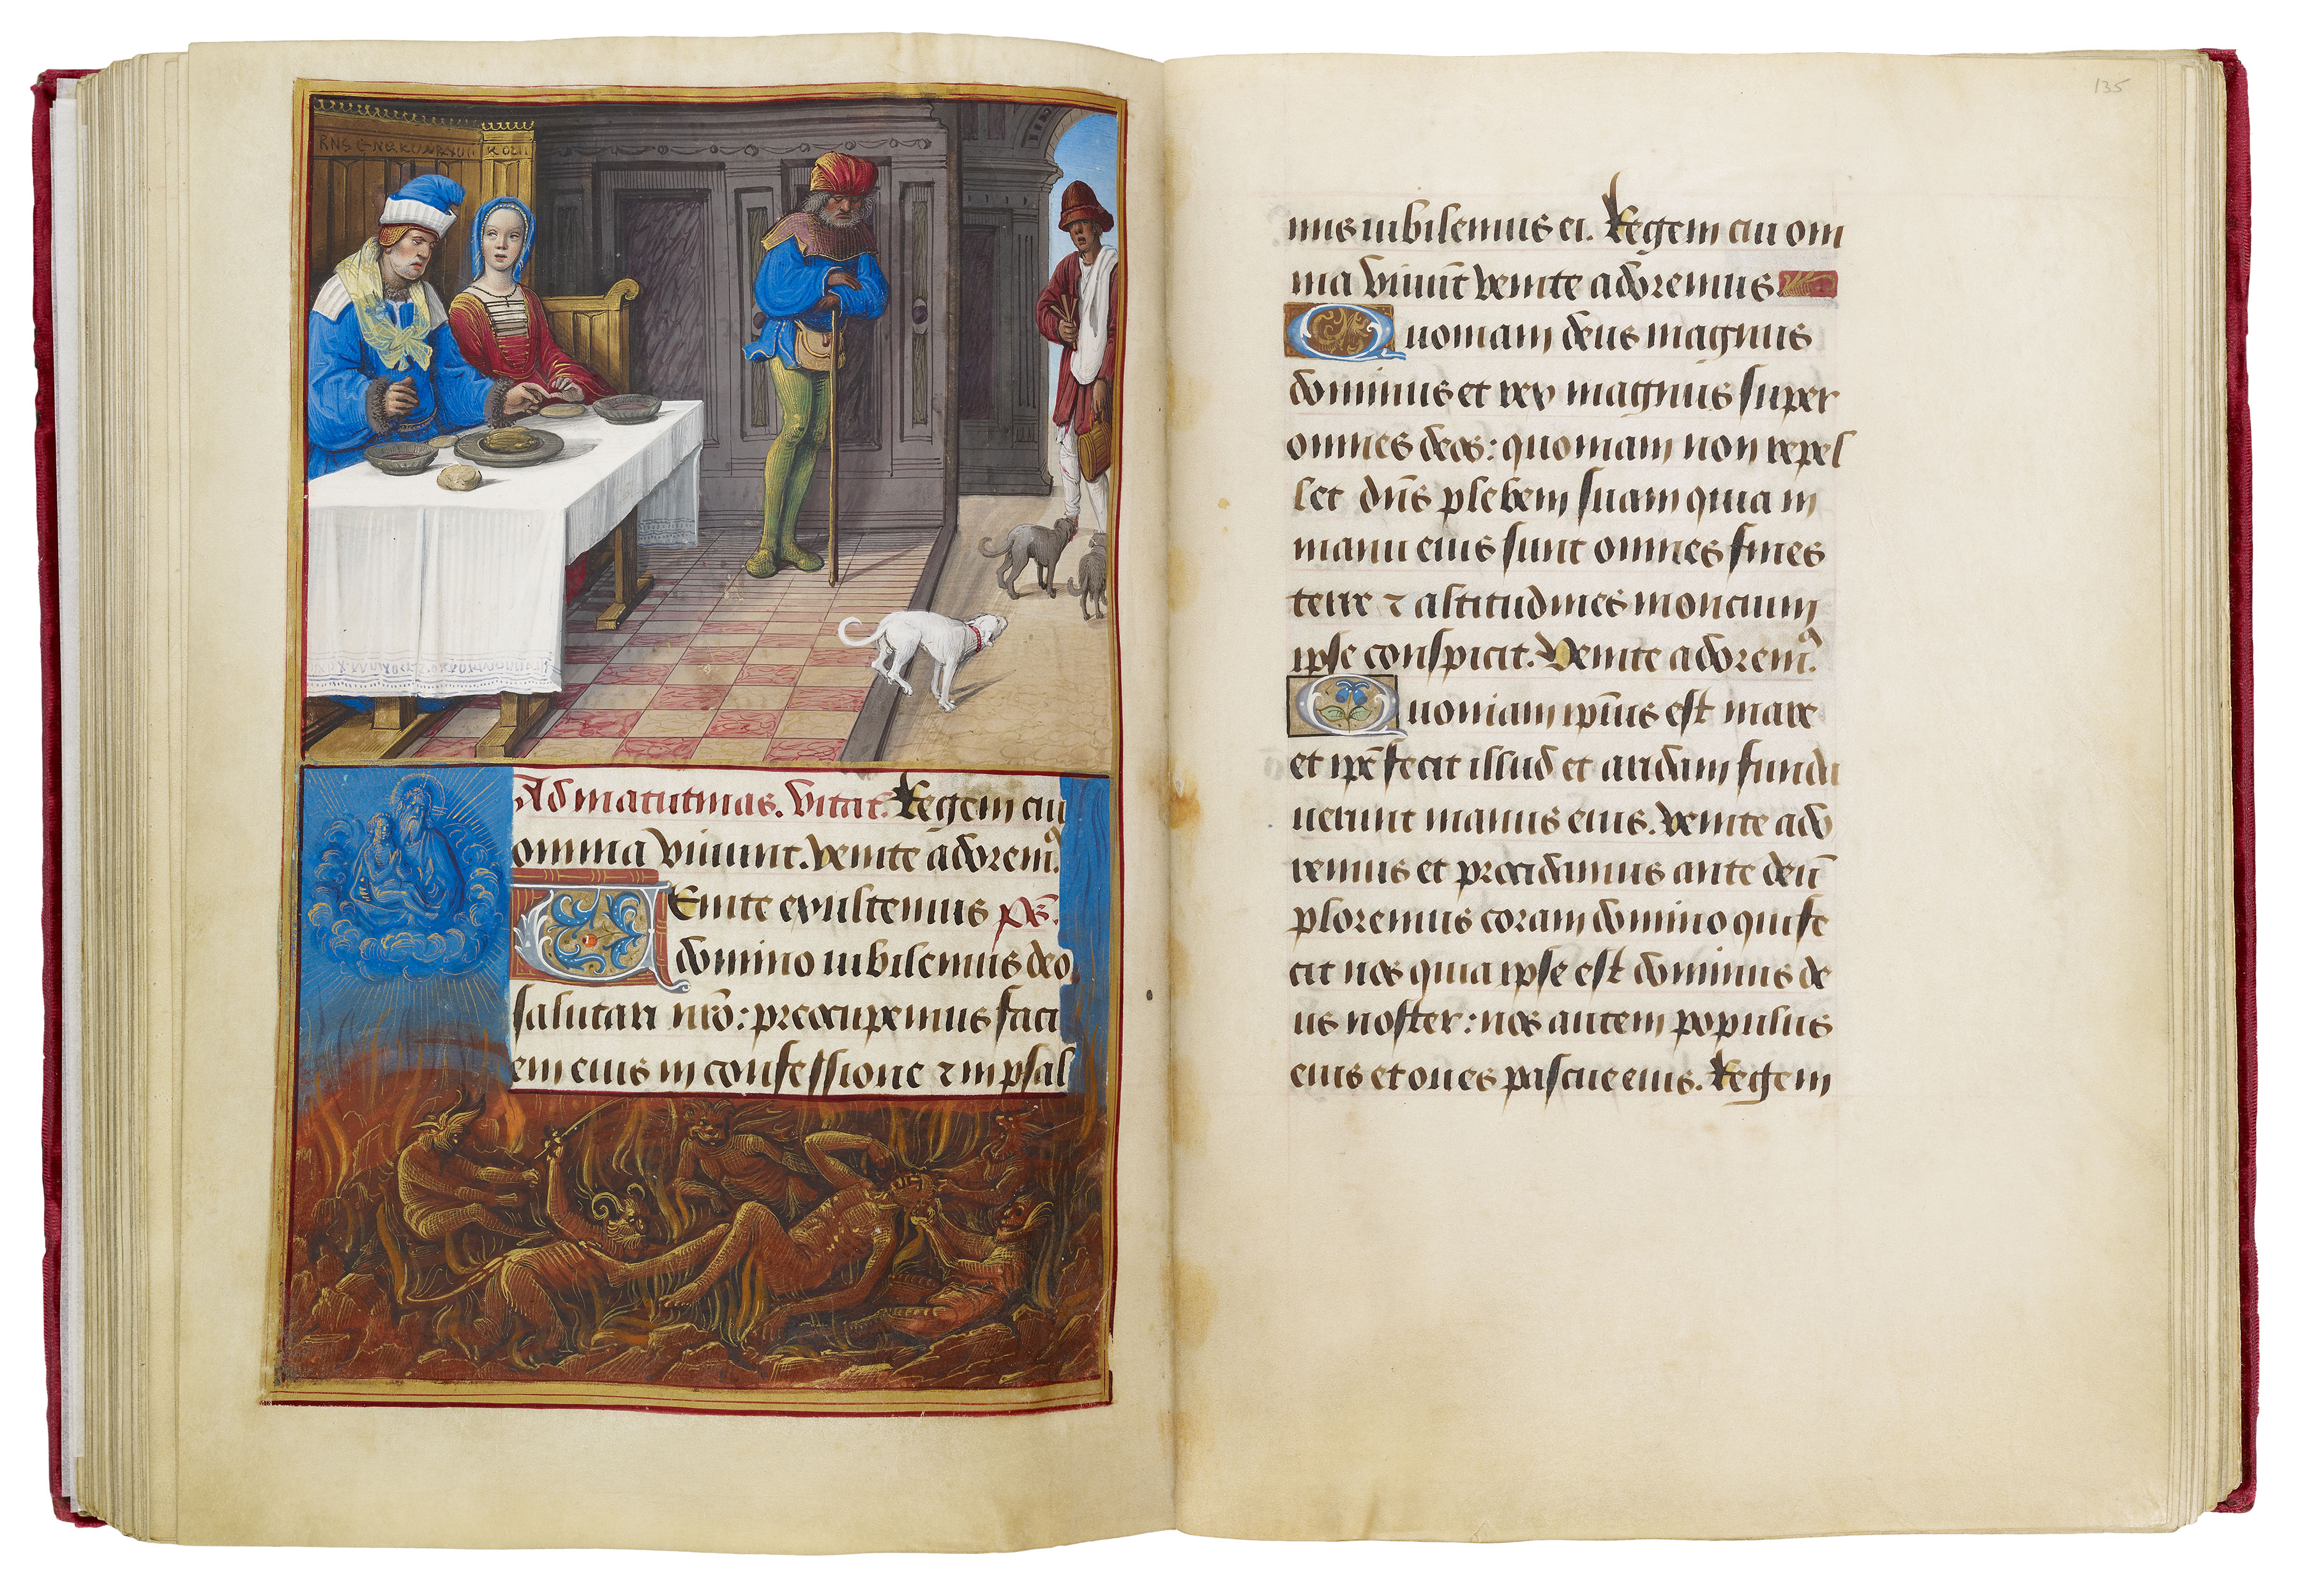 Ad matutinas. Vitat. Regem cui
omnia viuunt. venite adorem9.
VEnite exultemus ps.
domino iubilemus deo
salutari nr̄o: preocupemus faci
em eius in confessione ⁊ in psal
135
mis iubilemus ei. Regem cui om
nia viuūt venite adoremus
Quoniam deus magnus
dominus et rex magnus super
omnes deos: quoniam non repel
let dn̄s plebem suam quia in
manu eius sunt omnes fines
terre ⁊ altitudines moncium
ipse conspicit. Venite adorem9.
Quoniam ip̄ius est mare
et ip̄e fecit illud et aridam funda
uerunt manus eius. venite ado
remus et procidamus ante deū
ploremus coram domino qui fe
cit nos quia ipse est dominus de
us noster: nos autem populus
eius et oues pascue eius. Regem